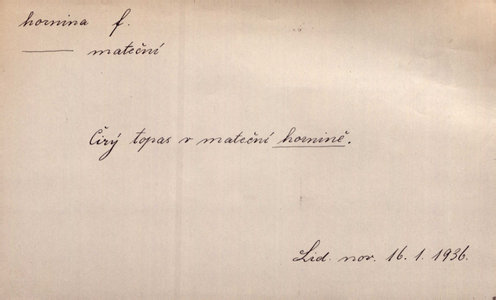 hornina f.
——— mateční
Čirý topas v mateční hornině.
Lid. nov. 16. 1. 1936.